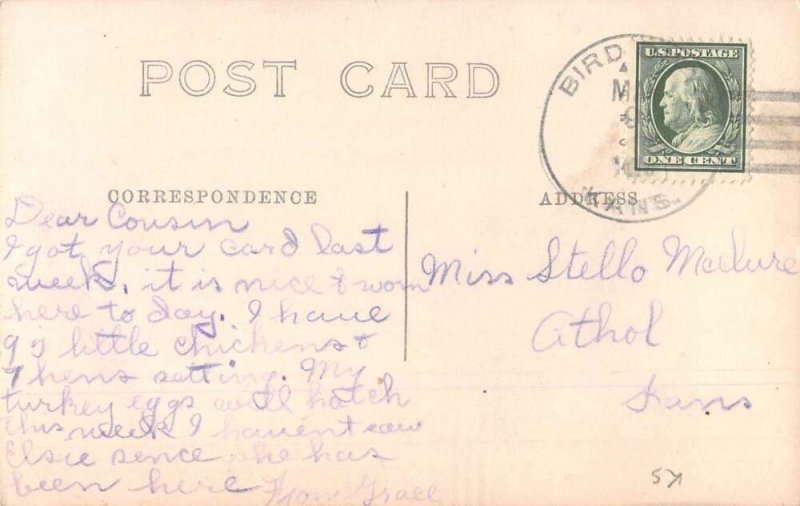 POST CARD
BIRD
KANS.
U.S. POSTAGE
ONE CENT
CORRESPONDENCE
ADDRESS
Dear Cousin
I got your card last
week. it is nice & worm
here to day. I have
95 little chickens &
7 hens setting. My
turkey eggs will hatch
this week I havent saw
Elsie sence she has
been here From Grace
Miss Stello McClure
Athol
Kans